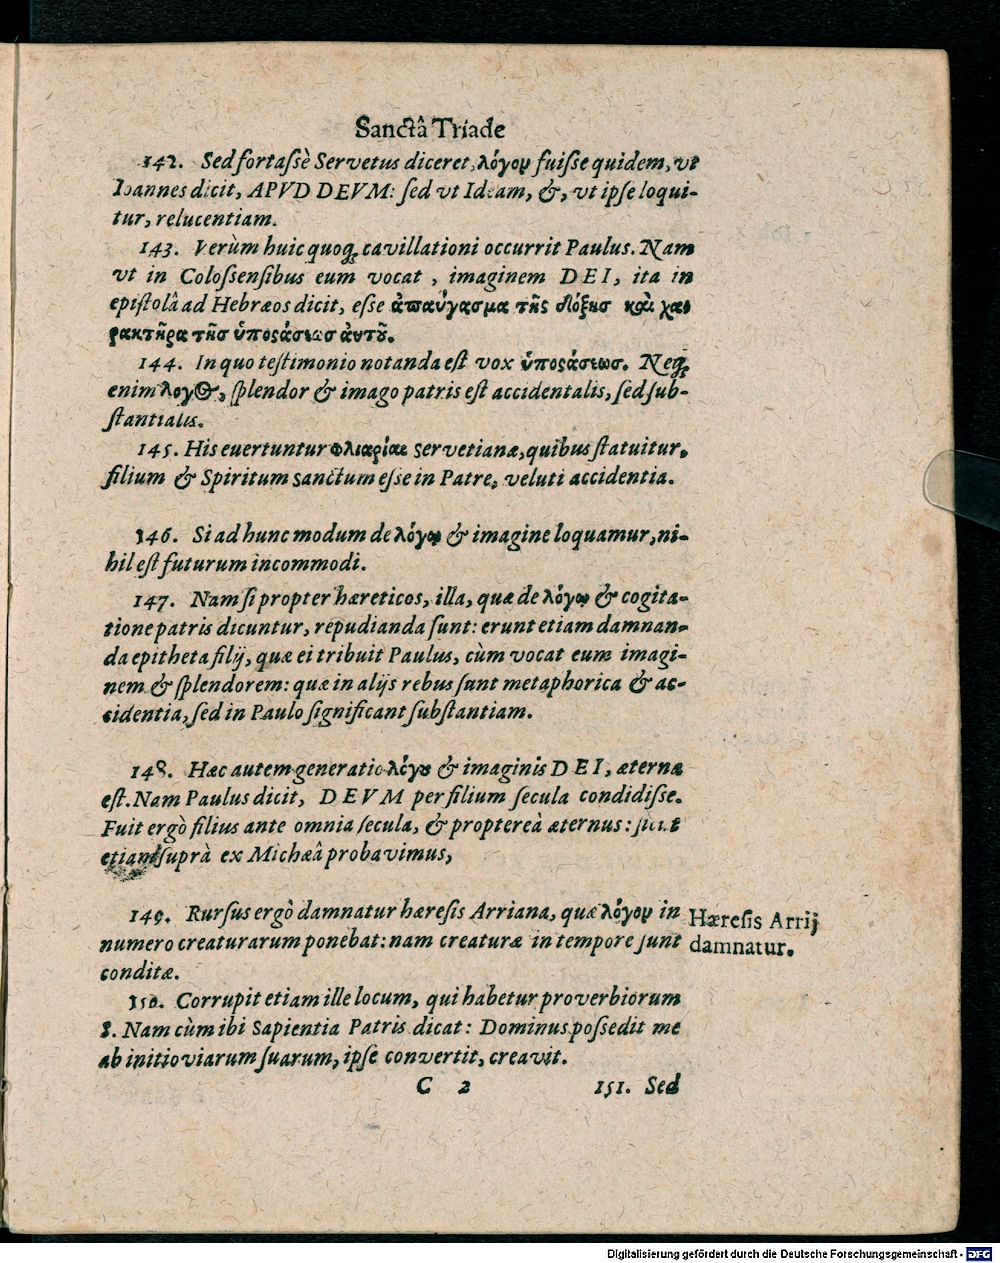 Sanctâ Triade
142. Sed fortaſsè Servetus diceret, λόγον fuiſse quidem, vt
Ioannes dicit, APVD DEVM: ſed vt Ideam, &, vt ipſe loqui-
tur, relucentiam.
143. Verùm huic quoq; cavillationi occurrit Paulus. Nam
vt in Coloſsenſibus eum vocat, imaginem DEI, ita in
epiſtolâ ad Hebræos dicit, eſse ἀπαύγασμα τῆς δόξης καὶ χα-
ρακτῆρα τῆσ ὑποϛάσιωσ ἀυτοῦ.
144. In quo teſtimonio notanda eſt vox ὑποϛάσεωσ. Neq;
enim λογΘ, ſplendor & imago patris eſt accidentalis, ſed ſub-
ſtantialis.
145. His evertuntur Φλιαρίαι Servetianæ, quibus ſtatuitur,
filium & Spiritum Sanctum eſse in Patre, veluti accidentia.
146. Si ad hunc modum de λόγῳ & imagine loquamur, ni-
hil eſt futurum incommodi.
147. Nam ſi propter hæreticos, illa, quæ de λόγῳ & cogita-
tione patris dicuntur, repudianda ſunt: erunt etiam damnan-
da epitheta filij, quæ ei tribuit Paulus, cùm vocat eum imagi-
nem & ſplendorem: quæ in alijs rebus ſunt metaphorica & ac-
cidentia, ſed in Paulo ſignificant ſubſtantiam.
148. Hæc autem generatio λόγȣ & imaginis DEI, æterna
eſt. Nam Paulus dicit, DEVM per filium ſecula condidiſse.
Fuit ergò filius ante omnia ſecula, & proptereà æternus: ſicut
etiam ſuprà ex Michæâ probavimus,
149. Rurſus ergò damnatur hæreſis Arriana, quæ λόγον in
numero creaturarum ponebat: nam creaturæ in tempore ſunt
conditæ.
Hæreſis Arrij
damnatur.
150. Corrupit etiam ille locum, qui habetur proverbiorum
8. Nam cùm ibi Sapientia Patris dicat: Dominus poſsedit me
ab initio viarum ſuarum, ipſe convertit, creavit.
C 2 151. Sed
Digitalisierung gefördert durch die Deutsche Forschungsgemeinschaft - DFG